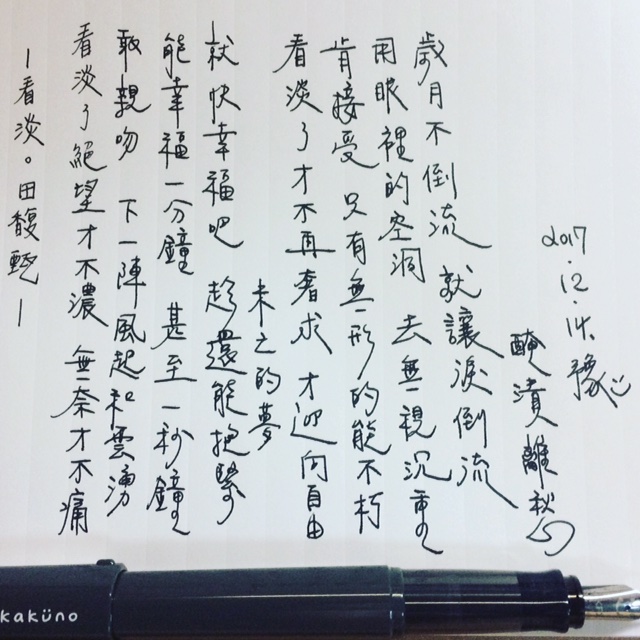 2017.12.14.豫
醃漬離愁
歲月不倒流 就讓淚倒流
用眼裡的空洞 去無視沉重
肯接受 只有無形的能不朽
看淡了才不再奢求 才迎向自由
未之的夢
就快幸福吧 趁還能抱緊
能幸福一分鐘 甚至一秒鐘
敢親吻 下一陣風起和雲湧
看淡了絕望才不濃 無奈才不痛
—看淡。田馥甄—
kaküno